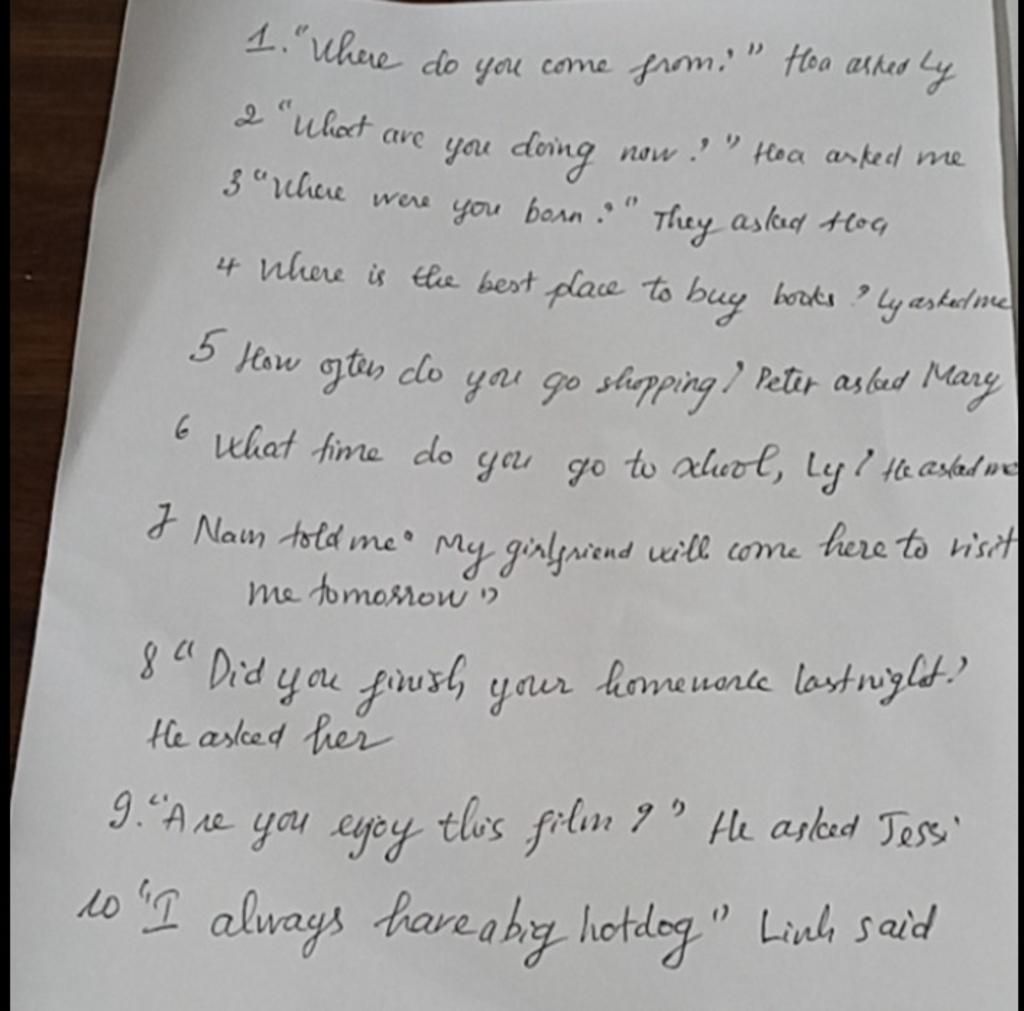 1. "Where do you come from?" Hoa asked Ly
2 "What are you doing now?" Hoa asked me
3 "Where were you born?" They asked Hoa
4 Where is the best place to buy books? Ly asked me
5 How often do you go shopping? Peter asked Mary
6 What time do you go to school, Ly? He asked me
7 Nam told me "My girlfriend will come here to visit
me tomorrow"
8 "Did you finish your homework last night?
He asked her
9. "Are you ejoy this film?" He asked Jessi
10 "I always have a big hotdog" Linh said